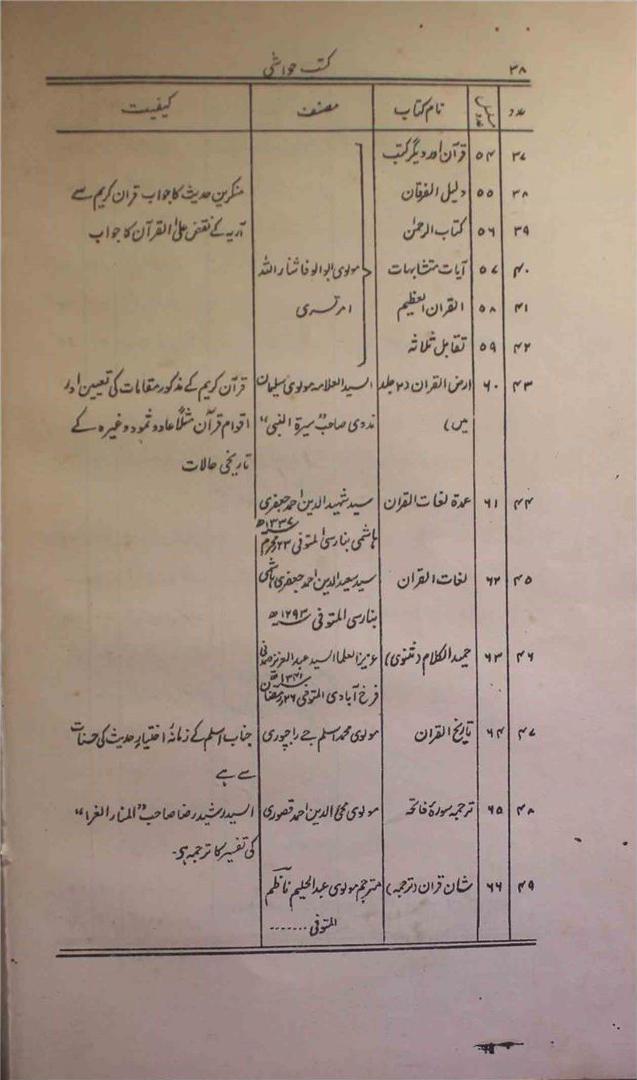 ۳۸ کتب حواشی
عدد مسلسل عدد نام کتاب مصنف کیفیت
۳۷ ۵۴ قرآن اور دیگر کتب
۳۸ ۵۵ دلیل الفرقان منکرین حدیث کا جواب قران کریم سے
۳۹ ۵۶ کتاب الرحمٰن آریہ کے نقض علی القرآن کا جواب
۴۰ ۵۷ آیات متشابہات مولوی ابو الوفا ثناء اللہ
۴۱ ۵۸ القران العظیم امرتسری
۴۲ ۵۹ تقابل ثلاثہ
۴۳ ۶۰ ارض القران (۲ جلد السید العلامہ مولوی سلیمان قرآن کریم کے مذکور مقامات کی تعیین اور
میں) ندوی صاحب "سیرۃ النبی" اقوام قرآن مثلاً عاد و ثمود وغیرہ کے
تاریخی حالات
۴۴ ۶۱ عمدۃ لغات القران سید شہید الدین احمد جعفری
ہاشمی بنارسی المتوفی ۲۳ محرم ۱۳۳۷ھ
۴۵ ۶۲ لغات القران سید سعید الدین احمد جعفری ہاشمی
بنارسی المتوفی ۱۲۹۳ھ
۴۶ ۶۳ حمید الکلام (مثنوی) عزیز العلما السید عبد العزیز
فرخ آبادی المتوفی ۲۶ رمضان ۱۳۴۱ھ
۴۷ ۶۴ تاریخ القران مولوی محمد اسلم جے راجپوری جناب اسلم کے زمانۂ اختیار حدیث کی حسنات
سے ہے
۴۸ ۶۵ ترجمہ سورۂ فاتحہ مولوی محی الدین احمد قصوری السید رشید رضا صاحب "المنار الغرا"
کی تفسیر کا ترجمہ ہے۔
۴۹ ۶۶ شان قران (ترجمہ) مترجم مولوی عبد الحلیم ناظم
المتوفی .......